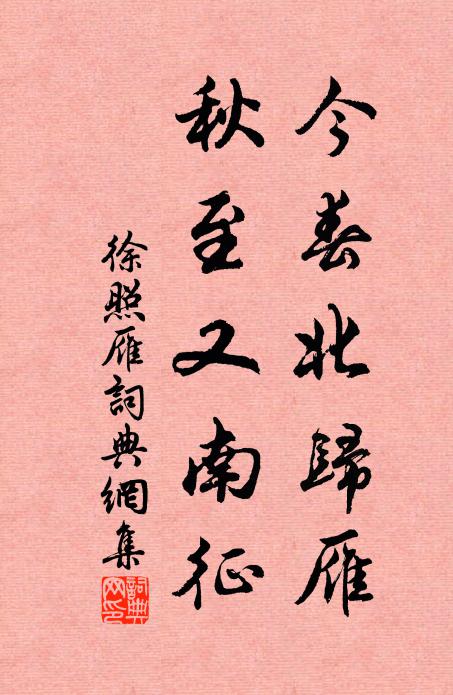 今春北歸雁
秋至又南征
徐照雁詞典網集
詞典網印